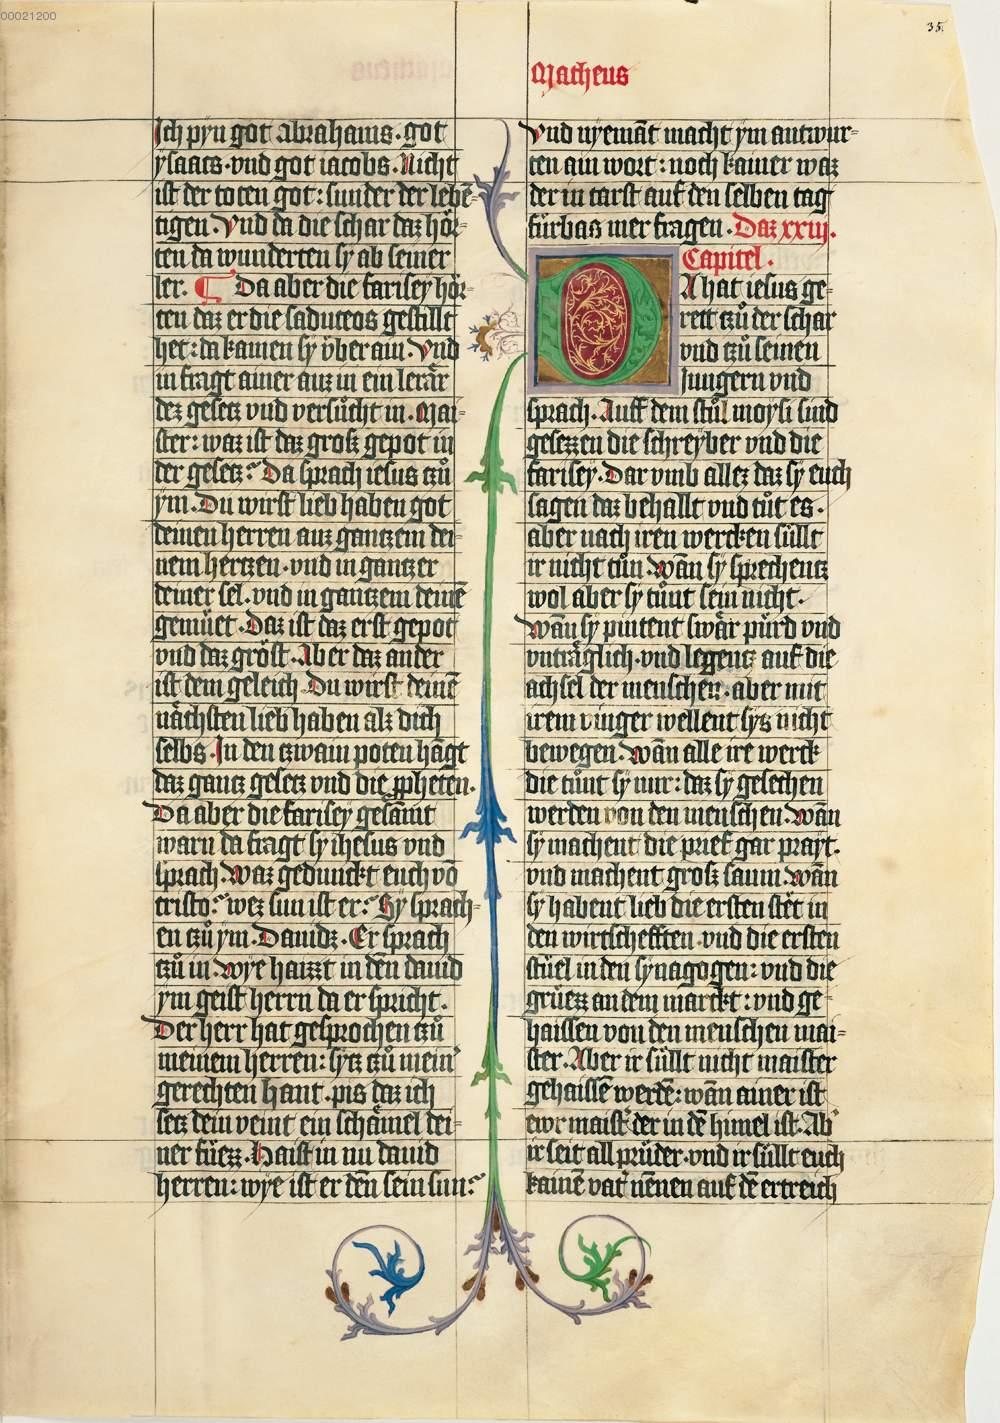 00021200
35.
Matheus
Ich pyn got abrahams. got
ysaacs. vnd got iacobs. Nicht
ist der toten got: sunder der lebē=
tigen. Vnd da die schar daz hör=
ten da wunderten sy ab seiner
ler. ¶ Da aber die farisey hör=
ten daz er die saduceos gestillt
het: da kamen sy vber ain. Vnd
in fragt ainer auz in ein lerär
dez gesetz vnd versůcht in. Mai=
ster: waz ist daz groß gepot in
der gesetz? Da sprach iesus tzů
ym. Du wirst lieb haben got
deinen herren auz gantzem dei=
nem hertzen. vnd in gantzer
deiner sel. vnd in gantzem deinē
gemüet. Daz ist daz erst gepot
vnd daz gröst. Aber daz ander
ist dem geleich. Du wirst deinē
nächsten lieb haben alz dich
selbs. In den tzwain poten hāgt
daz gantz gesetz vnd die ꝓpheten.
Da aber die farisey gesāmt
warn da fragt sy ihesus vnd
sprach. Waz gedunckt euch vō
cristo? wez sun ist er? Sy sprach=
en tzů ym. Dauidz. Er sprach
tzů in. Wye haizzt in dēn dauid
ym geist herrn da er spricht.
Der herr hat gesprochen tzů
meinem herren: sytz tzů mein̄
gerechten hant. pis daz ich
setz dein veint ein schämel dei=
ner füezz. Haist in nu dauid
herren: wye ist er dēn sein sun?
Vnd nyemāt macht ym antwur=
ten ain wort: noch kainer waz
der in tarst auf den selben tag
fürbas mer fragen. Daz xxiij.
Capitel.
DA hat iesus ge=
rett tzů der schar
vnd tzů seinen
jungern vnd
sprach. Auff dem stůl moysi sind
gesezzen die schreyber vnd die
farisey. Dar vmb allez daz sy euch
sagen daz behallt vnd tůt es.
aber nach iren wercken süllt
ir nicht tůn. Wān sy sprechentz
wol aber sy tůnt sein nicht.
Wān sy pintent swär pürd vnd
vnträglich. vnd legentz auf die
achsel der menschen. aber mit
irem vinger wellent sys nicht
bewegen. Wān alle ire werck
die tůnt sy nur: daz sy gesechen
werden von den menschen. Wān
sy machent die prief gar prayt.
vnd machent groß saum. Wān
sy habent lieb die ersten stēt in
den wirtschefften. vnd die ersten
stüel in den synagogen: vnd die
grüezz an dem marckt: vnd ge=
haissen von den menschen mai=
ster. Aber ir süllt nicht maister
gehaissē werdē: wān ainer ist
ewr maist̄ der in dē himel ist. Ab̄
ir seit all prüder. vnd ir süllt euch
kainē vat̄ nēnen auf dē ertreich